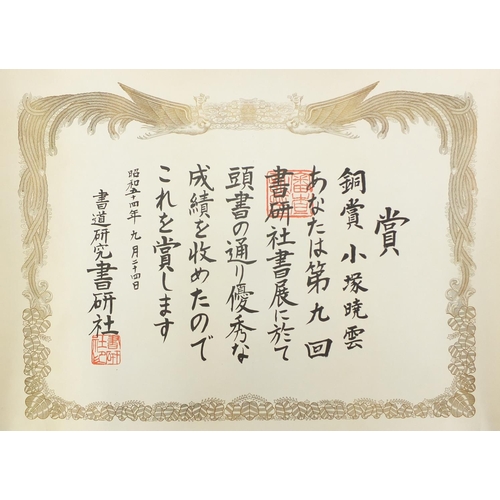 賞
銅賞 小塚暁雲
あなたは第九回
書研社書展に於て
頭書の通り優秀な
成績を收めたので
これを賞します
昭和五十四年九月二十四日
書道研究書研社